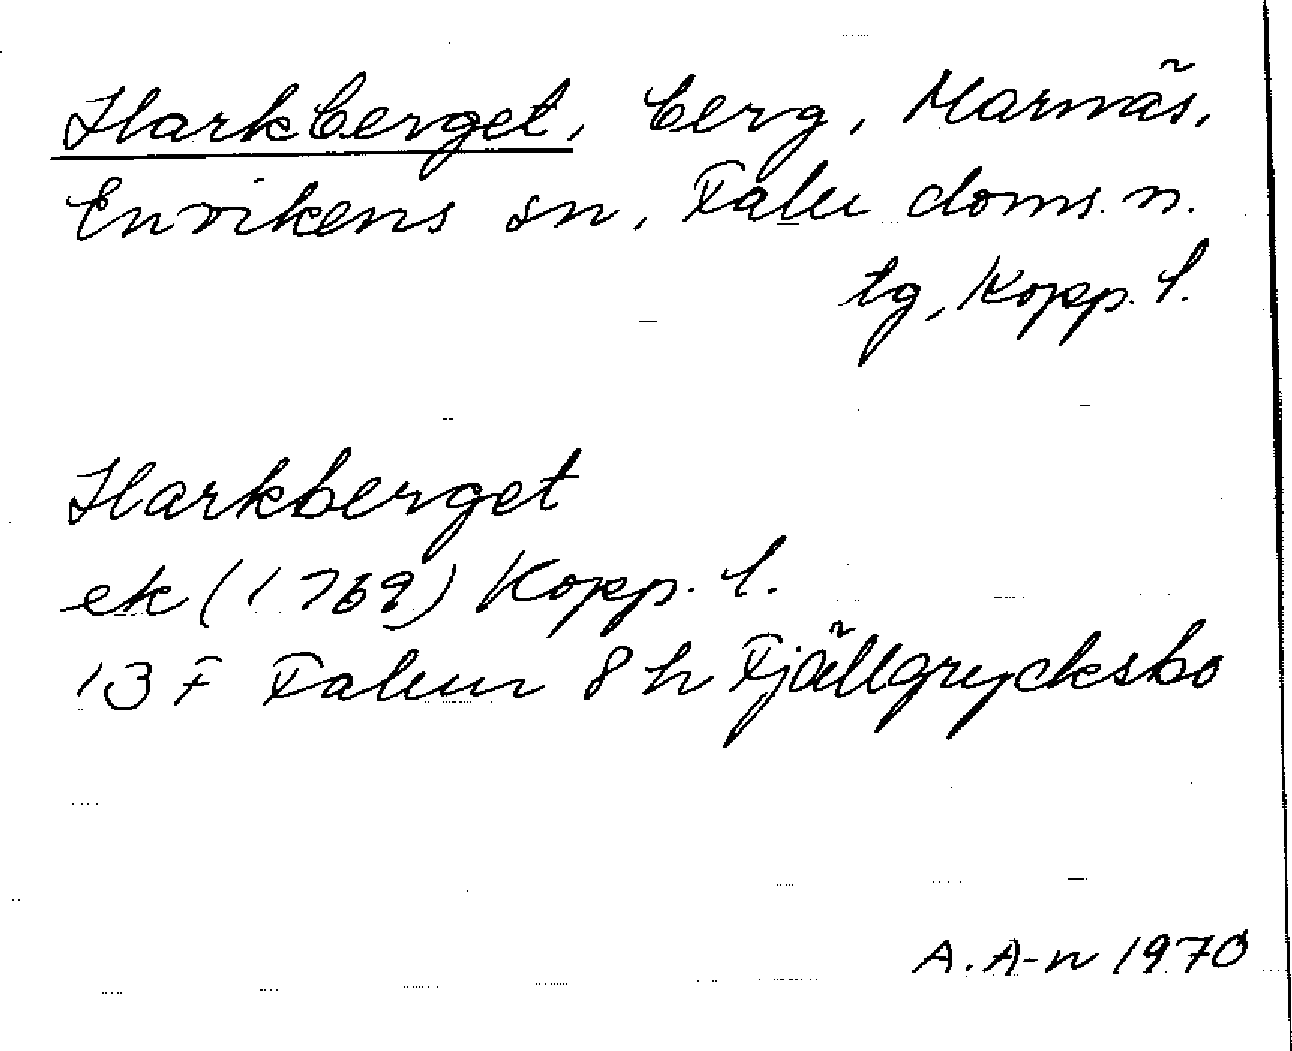 Harkberget, berg, Marnäs,
Envikens sn, Falu doms. n.
tg, Kopp. l.
Harkberget
ek (1769) Kopp. l.
13 F Falun 8 h Fjällgrycksbo
A. A-n 1970